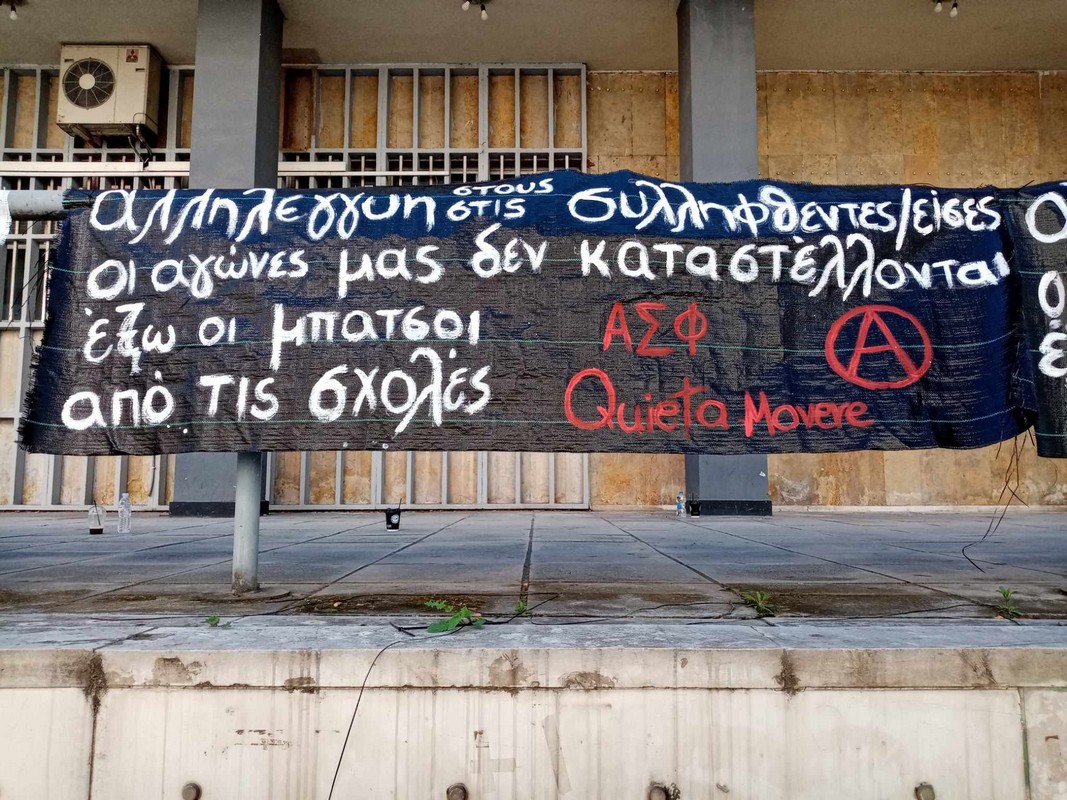 αλληλεγγυη στους στις συλληφθεντες/εισες
οι αγώνες μας δεν καταστέλλονται
έξω οι μπατσοι
από τις σχολές
ΑΣΦ
Ⓐ
Quieta Movere